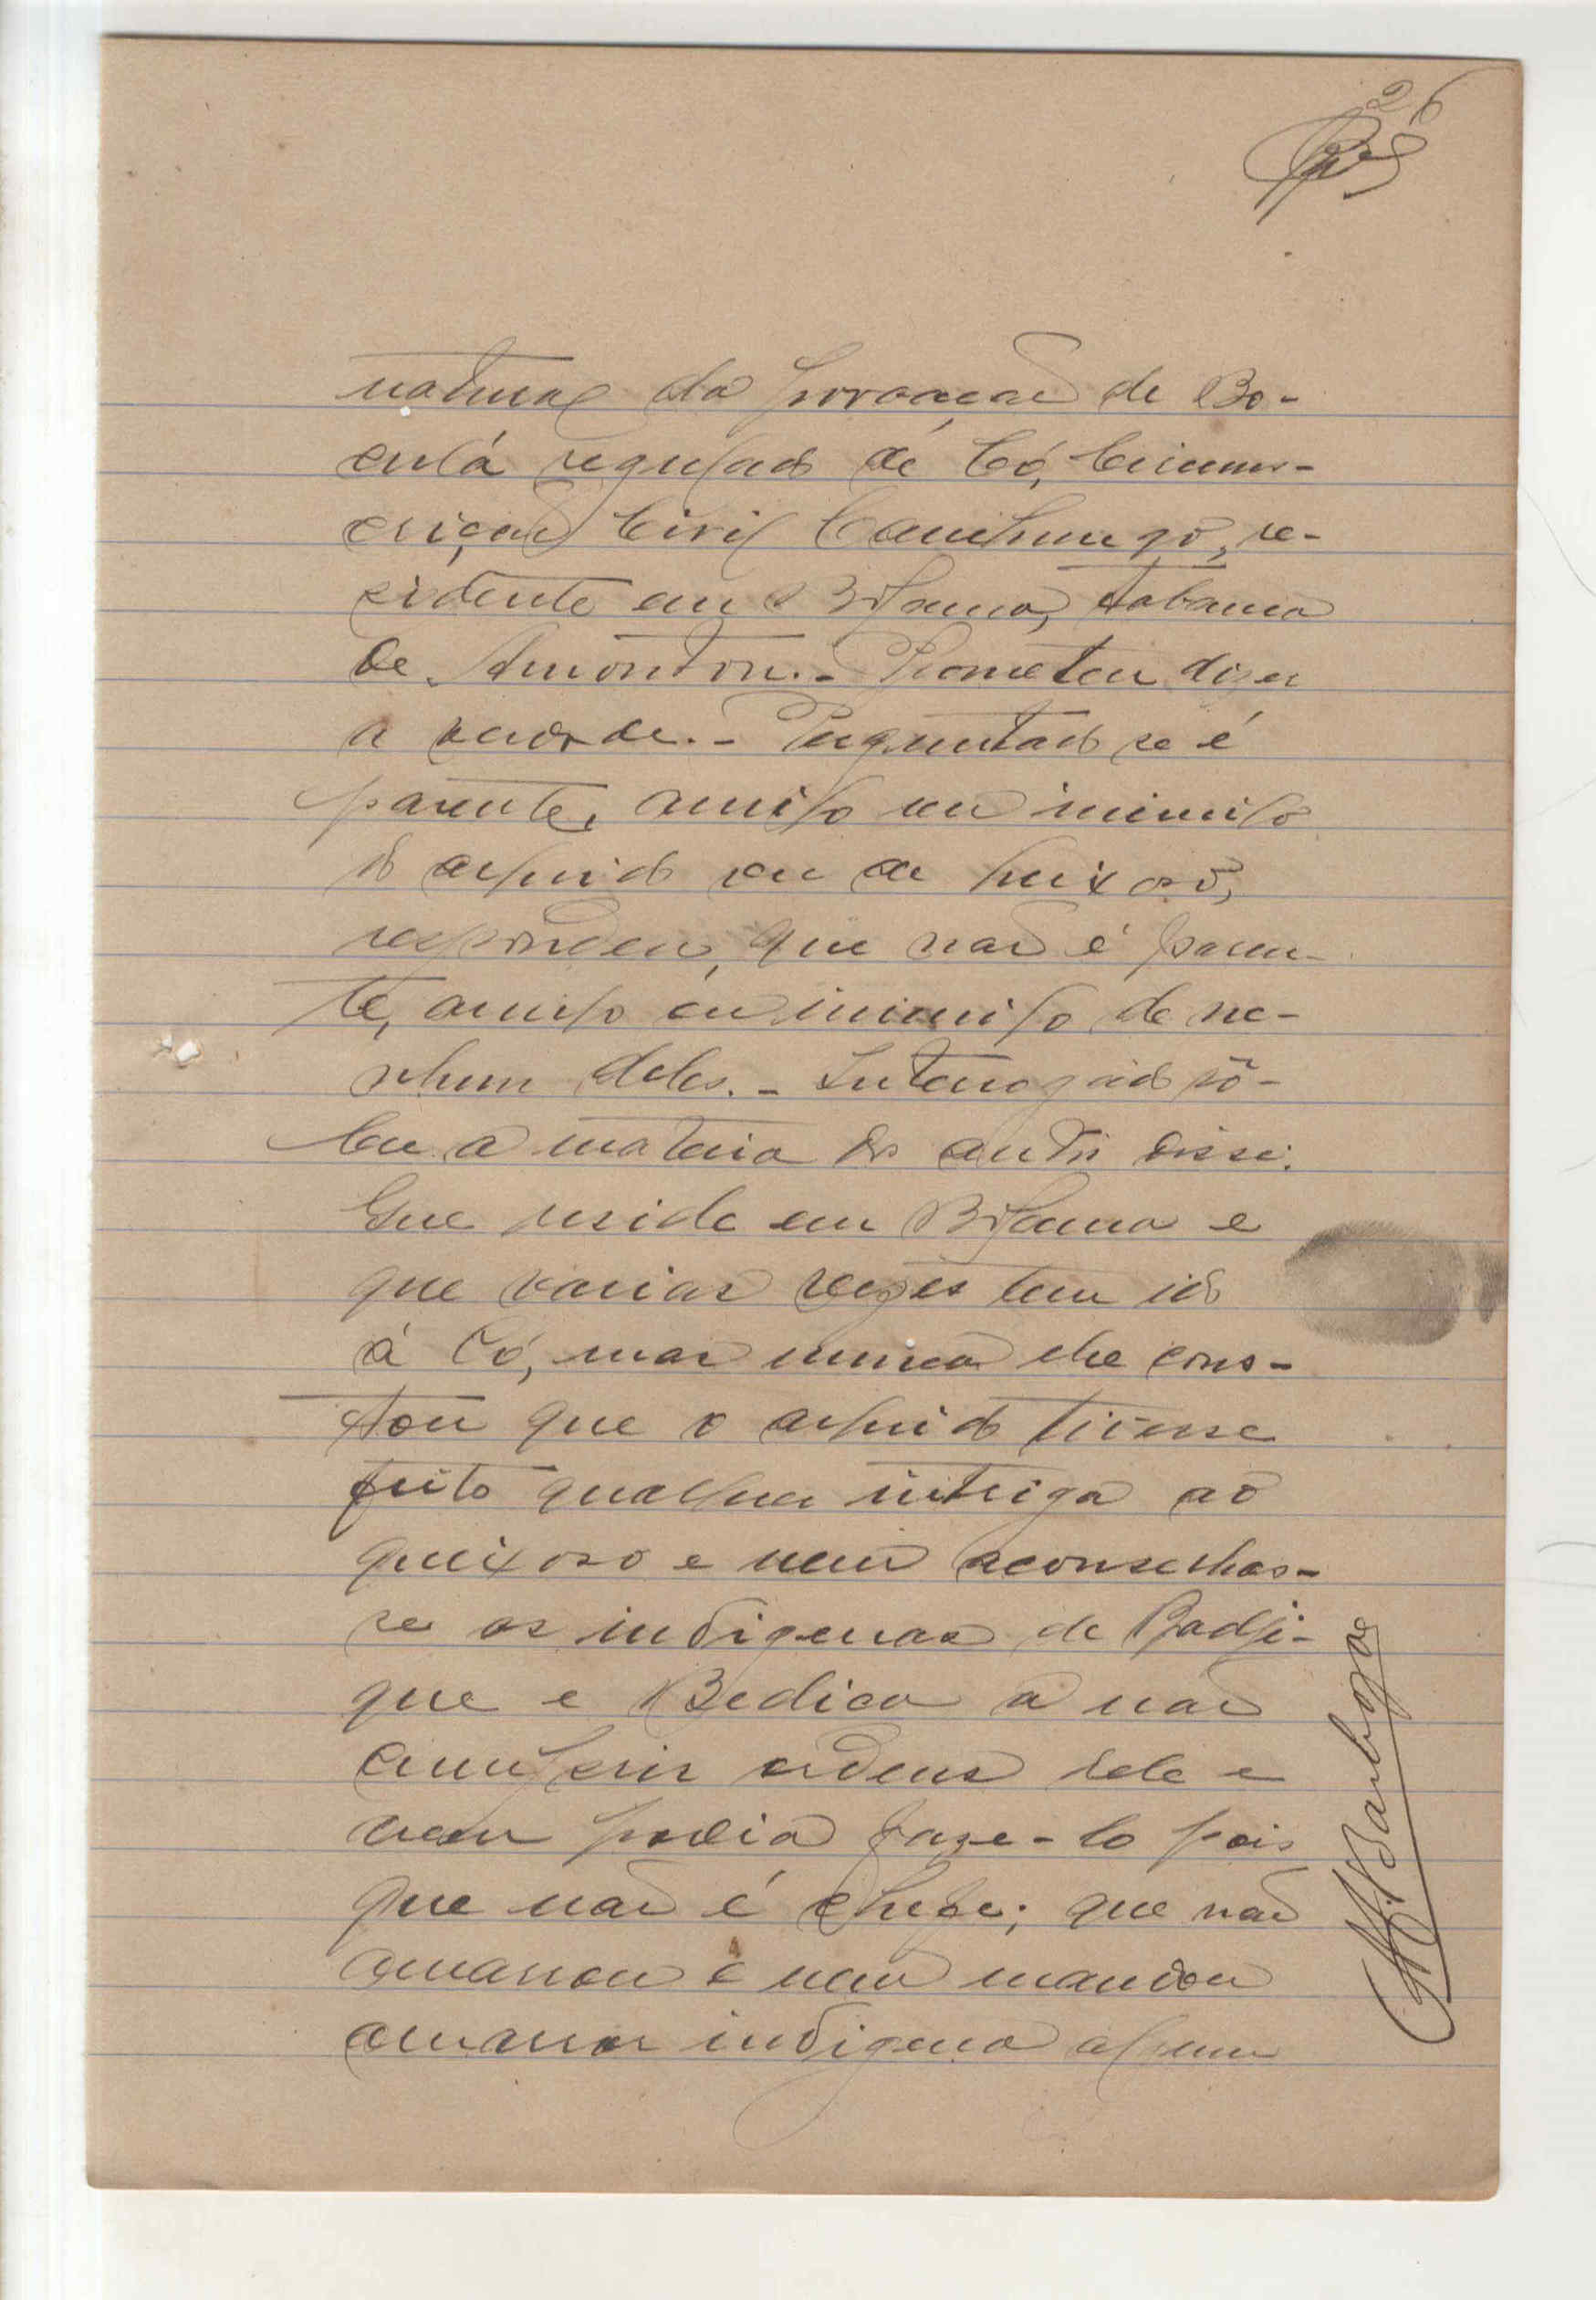 26
natural da povoação de Bo-
culá regulado de Có, Circuns-
crição Civil Canchungo, re-
sidente em Bijamo, tabanca
de Amonton.- Prometeu dizer
a verdade.- Perguntado se é
parente, amigo ou inimigo
do arguido ou do queixoso,
respondeu, que não é paren-
te, amigo ou inimigo de ne-
nhum deles.- Interrogado sô-
bre a materia dos autos disse:
Que reside em Bijamo e
que varias vezes tem ido
á Có, mas nunca lhe cons-
tou que o arguido tivesse
feito qualquer intriga ao
queixoso e nem aconselhas-
se os indigenas de Badji-
que e Bedica a não
cumprir ordens dele e
nem podia faze-lo pois
que não é chefe; que não
amarrou e nem mandou
amarrar indigena algum
Barboza